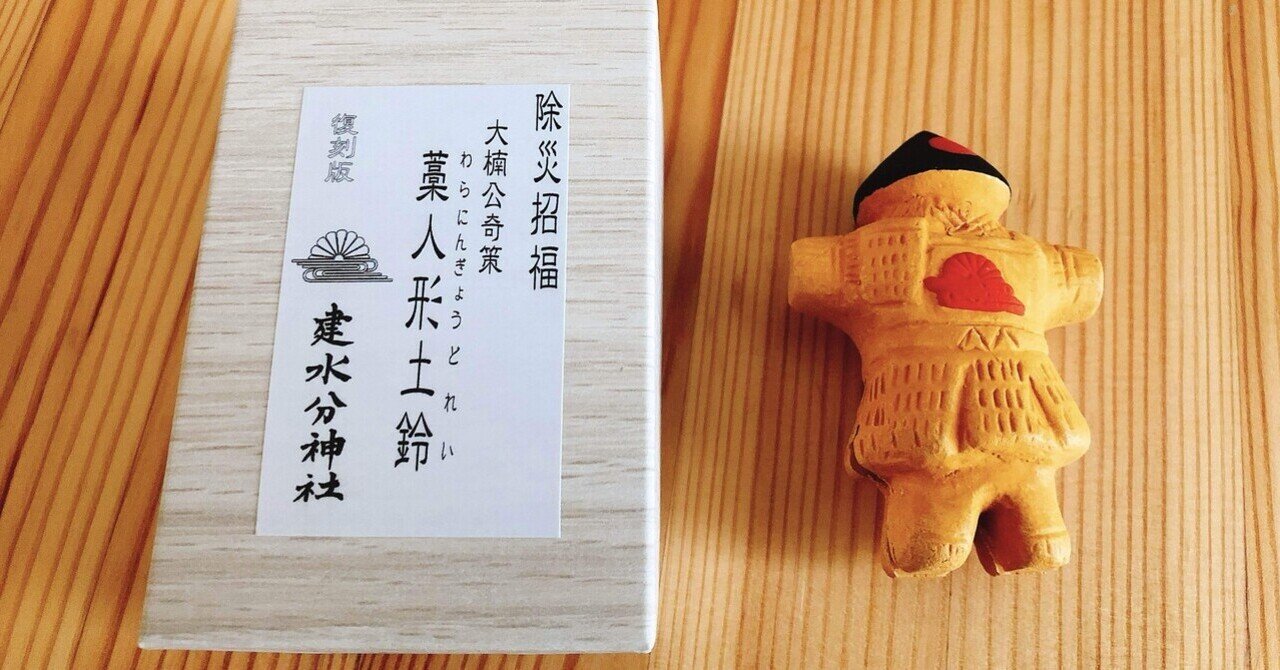 除災招福
大楠公奇策
わらにんぎょうどれい
藁人形土鈴
復刻版
建水分神社